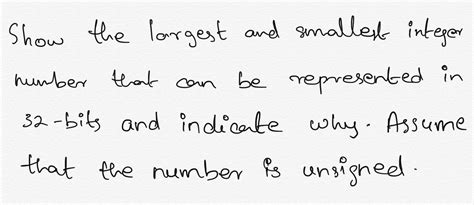 Show the largest and smallest integer
number that can be represented in
32-bits and indicate why. Assume
that the number is unsigned.